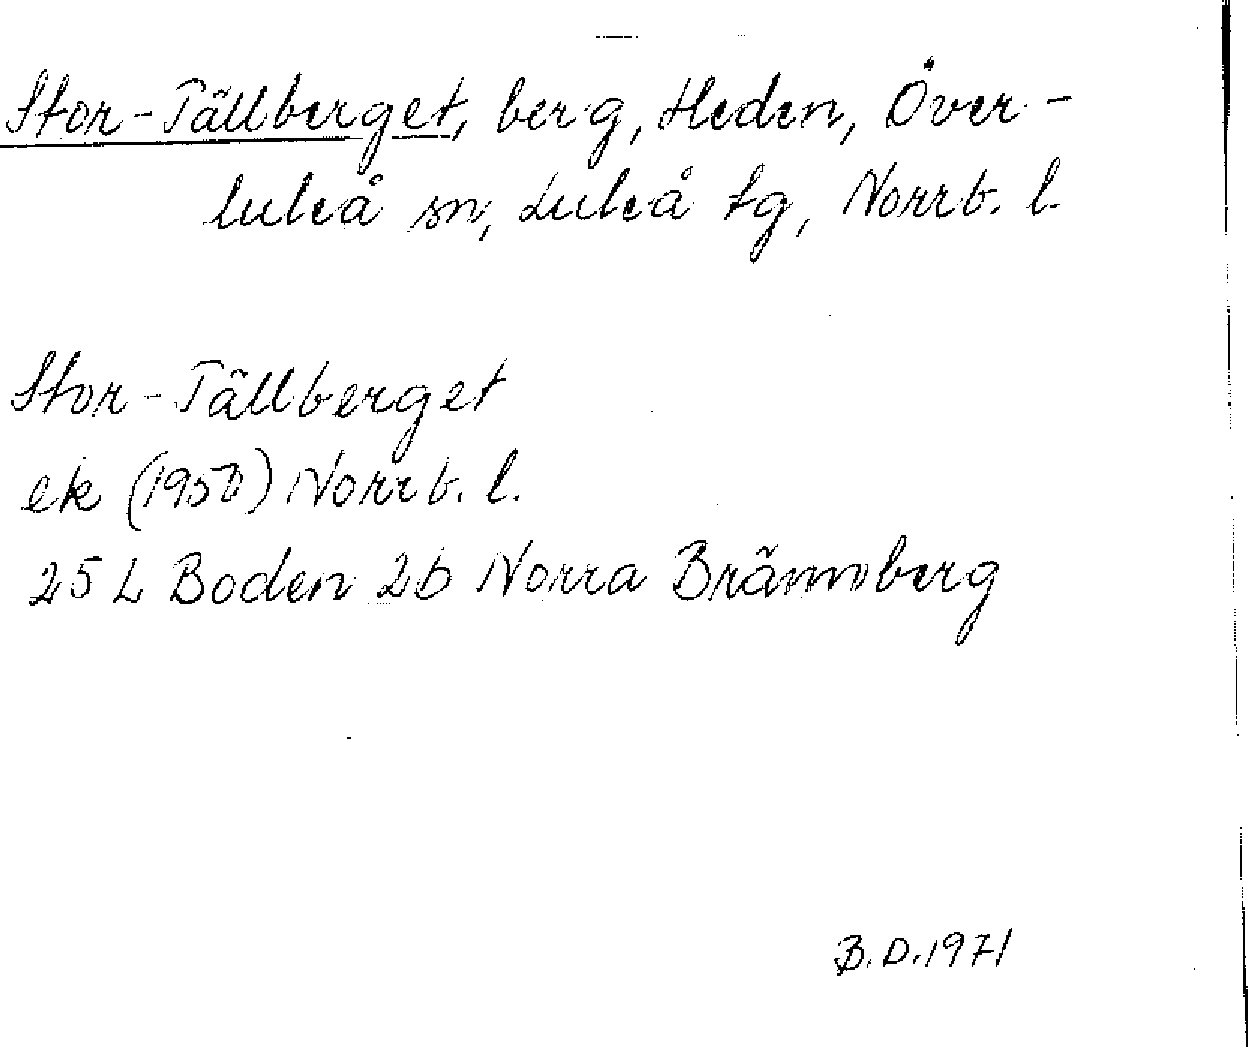 Stor-Tällberget, berg, Heden, Över-
luleå sn, Luleå tg, Norrb. l.
Stor-Tällberget
ek (1950) Norrb. l.
25 L Boden 2b Norra Brännberg
B.D.1971